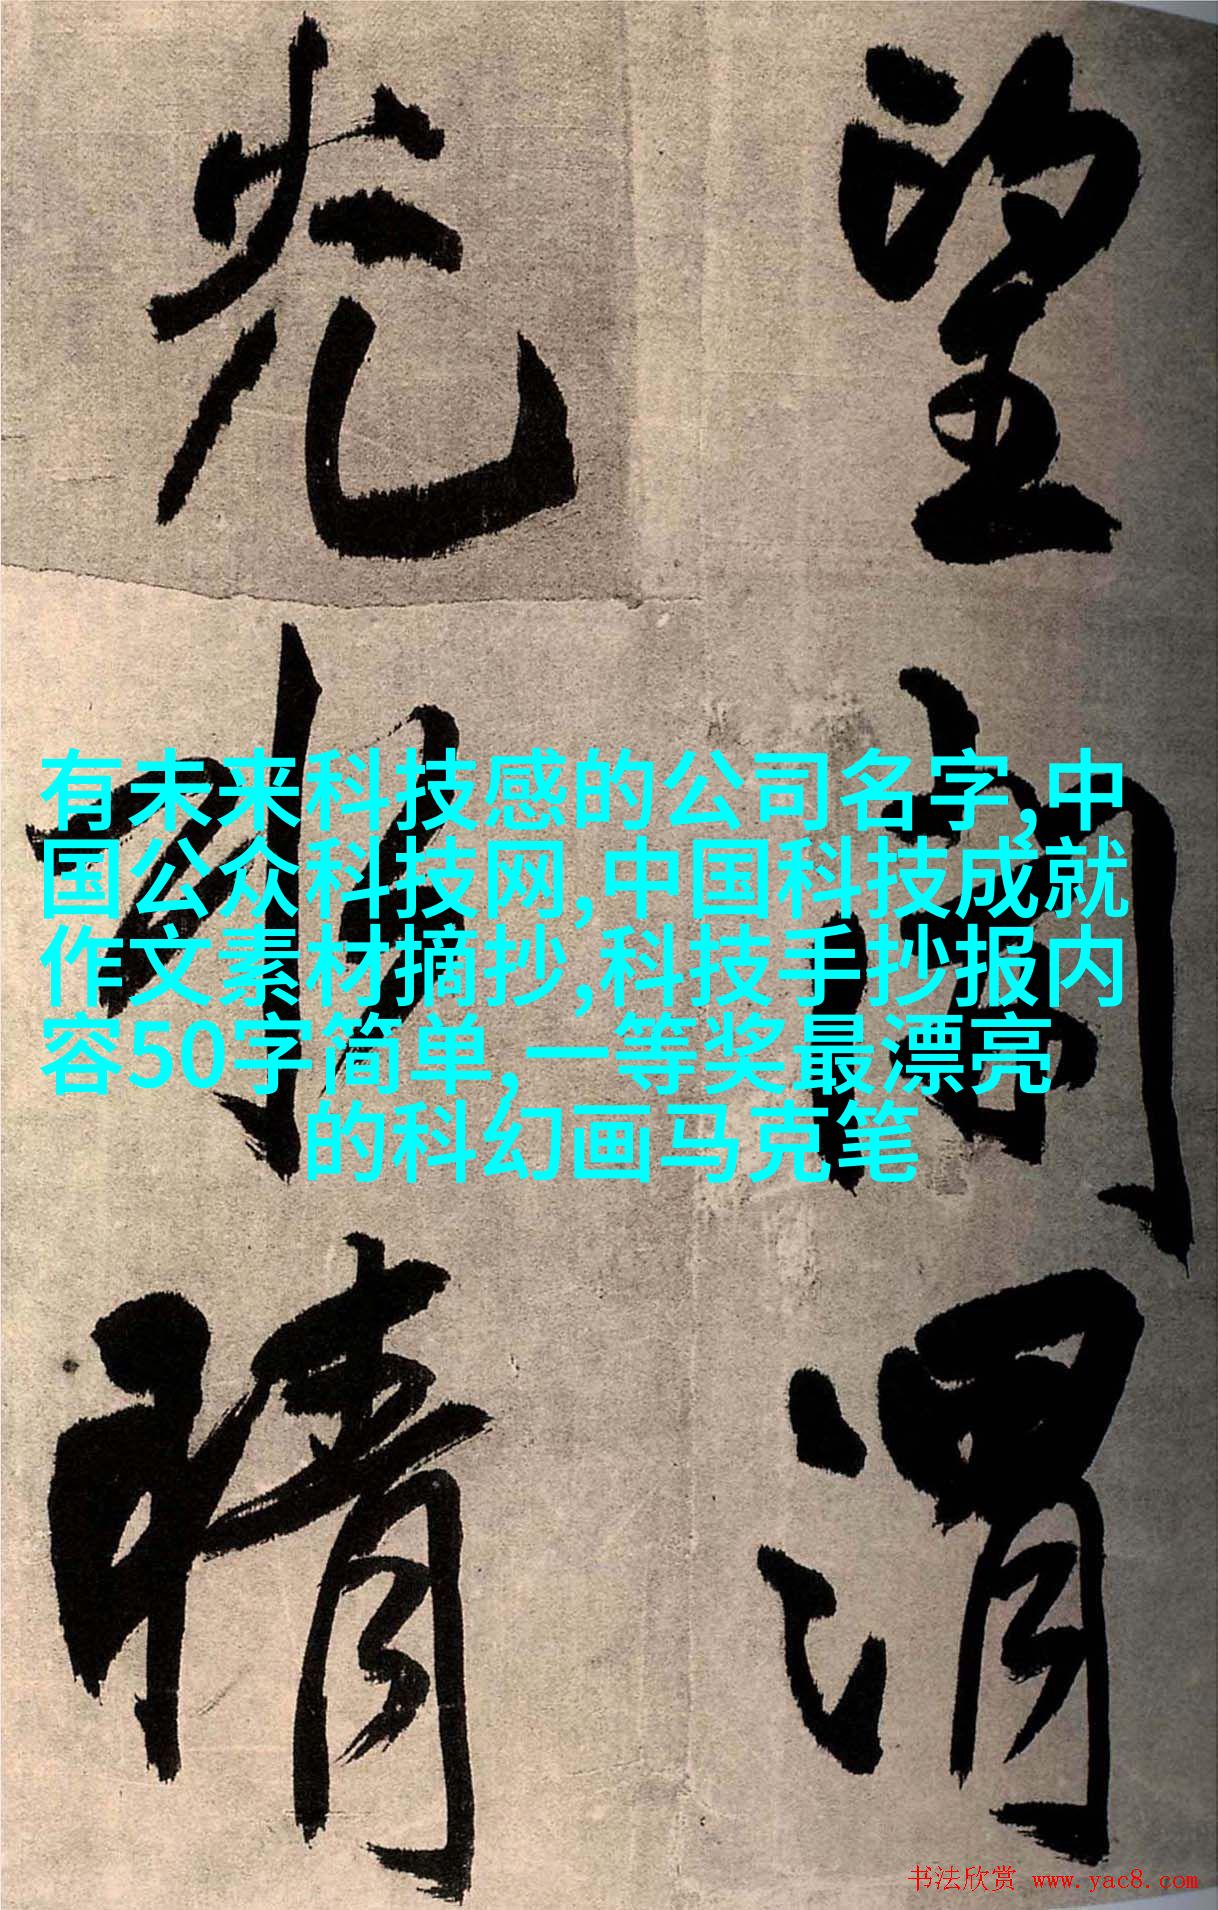 望
渭
光
晴
有未来科技感的公司名字,中
国公众科技网,中国科技成就
作文素材摘抄,科技手抄报内
容50字简单,一等奖最漂亮
的科幻画马克笔
书法欣赏 www.yac8.com